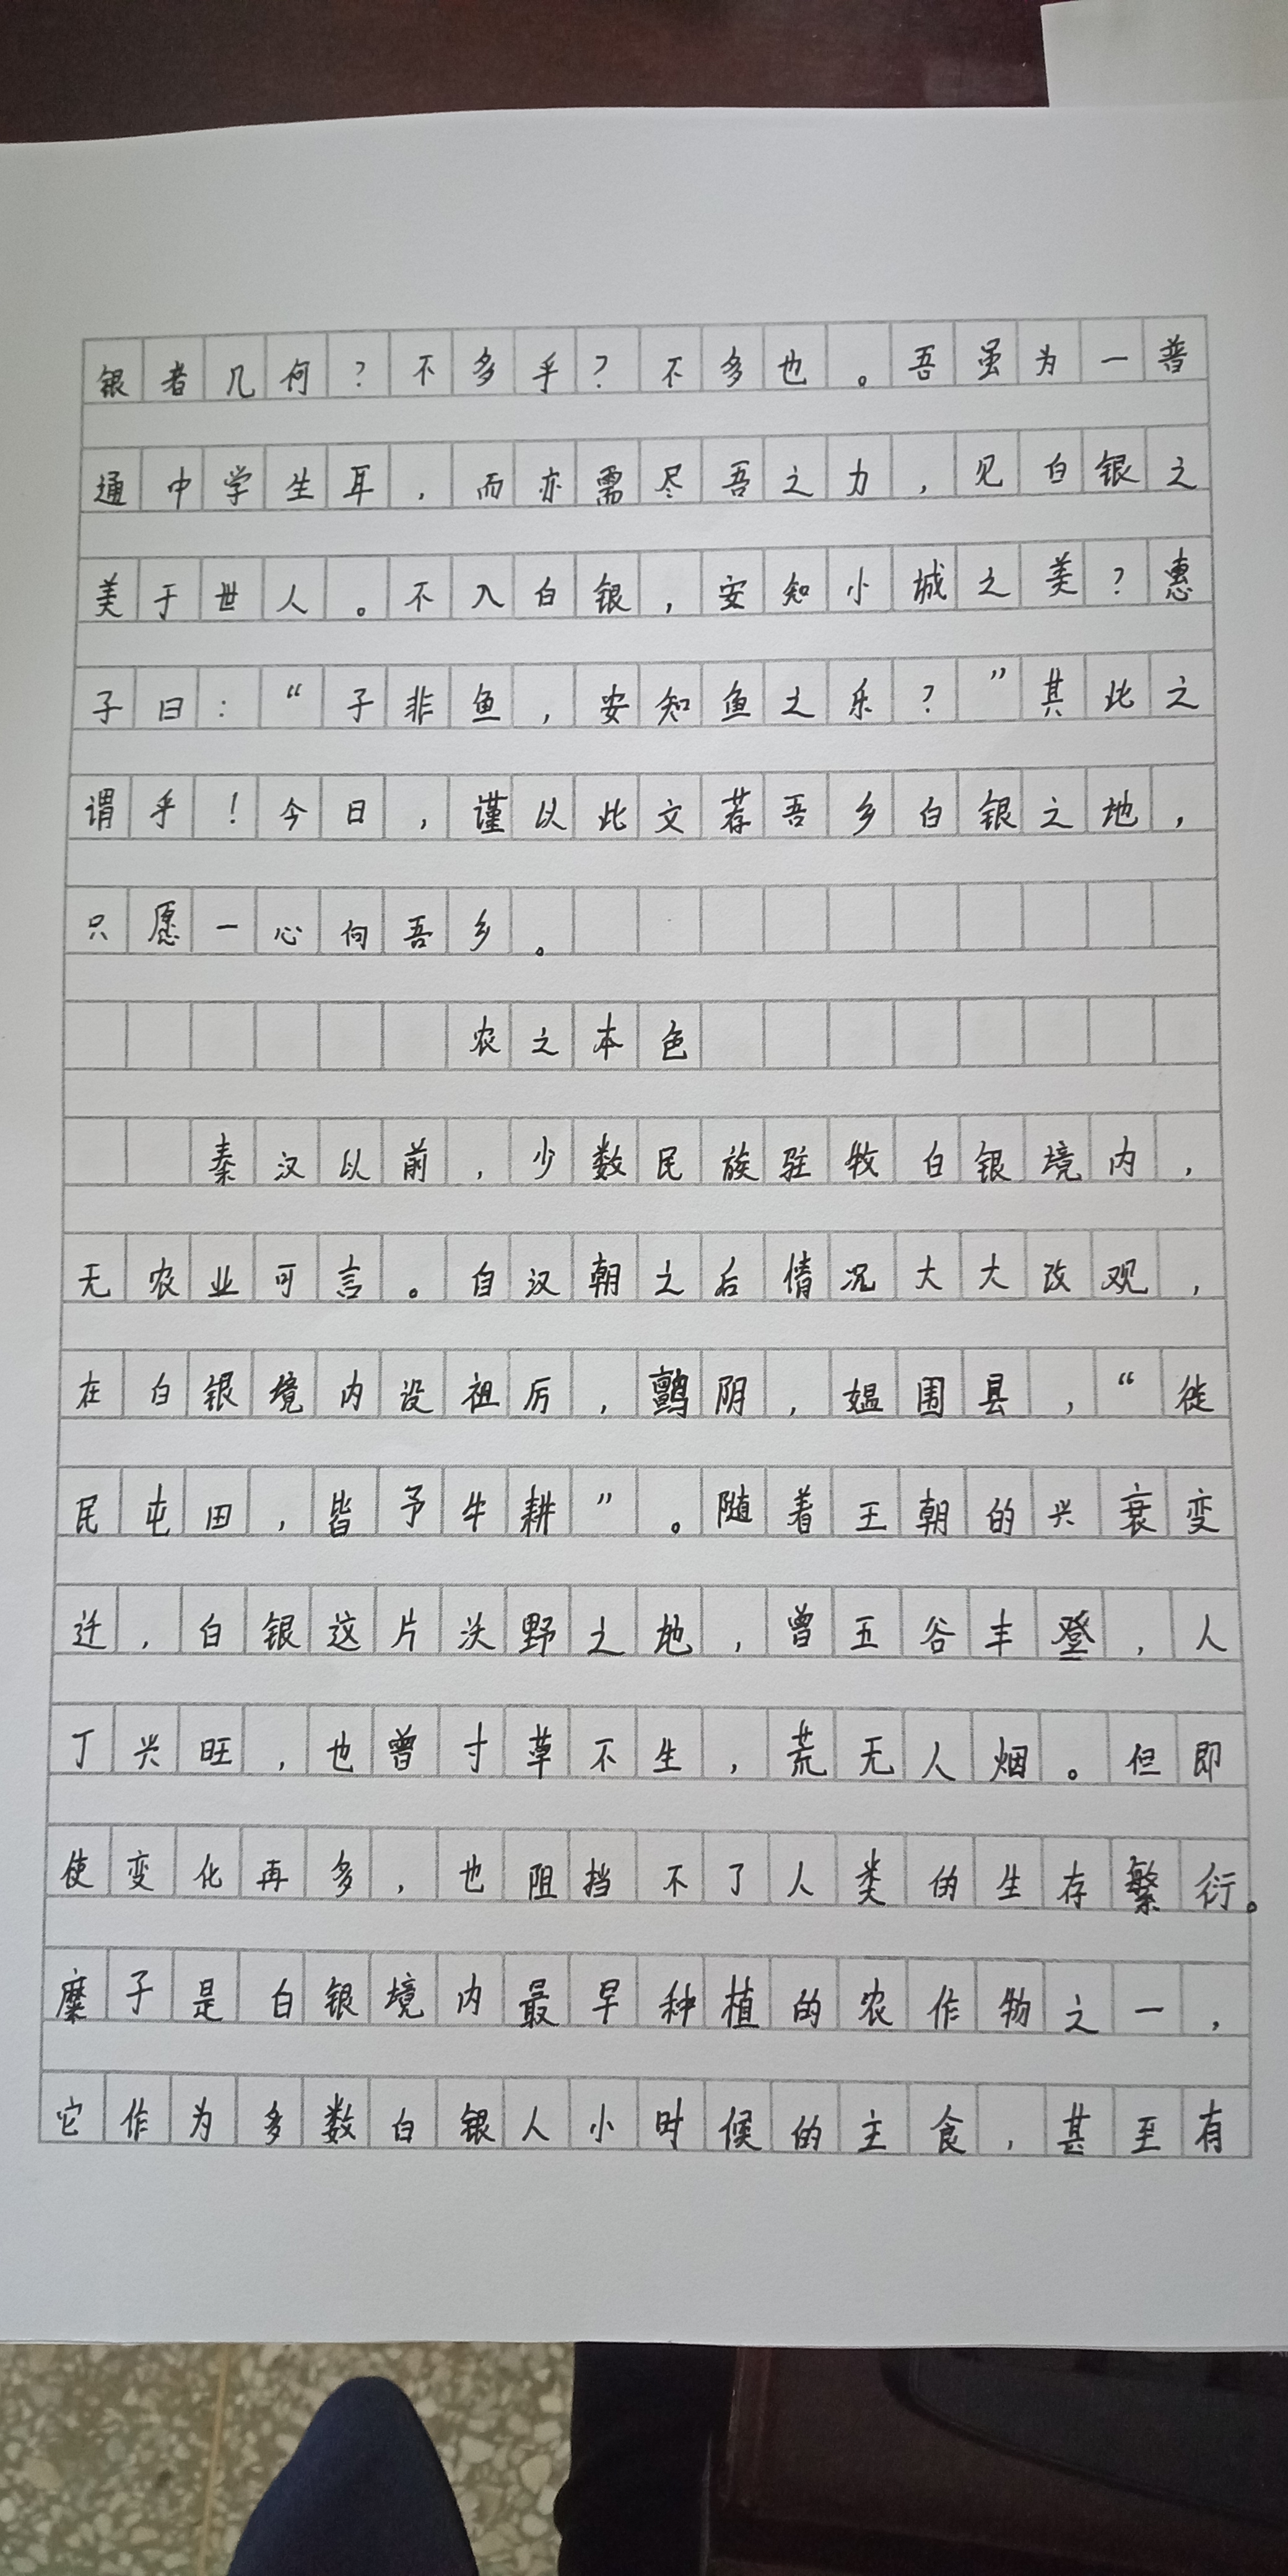 银者几何?不多乎?不多也。吾虽为一普
通中学生耳,而亦需尽吾之力,见白银之
美于世人。不入白银,安知小城之美?惠
子曰:“子非鱼,安知鱼之乐?”其此之
谓乎!今日,谨以此文荐吾乡白银之地,
只愿一心向吾乡。
农之本色
秦汉以前,少数民族驻牧白银境内,
无农业可言。自汉朝之后情况大大改观,
在白银境内设祖厉,鹯阴,媪围县,“徙
民屯田,皆予牛耕”。随着王朝的兴衰变
迁,白银这片沃野之地,曾五谷丰登,人
丁兴旺,也曾寸草不生,荒无人烟。但即
使变化再多,也阻挡不了人类的生存繁衍。
糜子是白银境内最早种植的农作物之一,
它作为多数白银人小时候的主食,甚至有